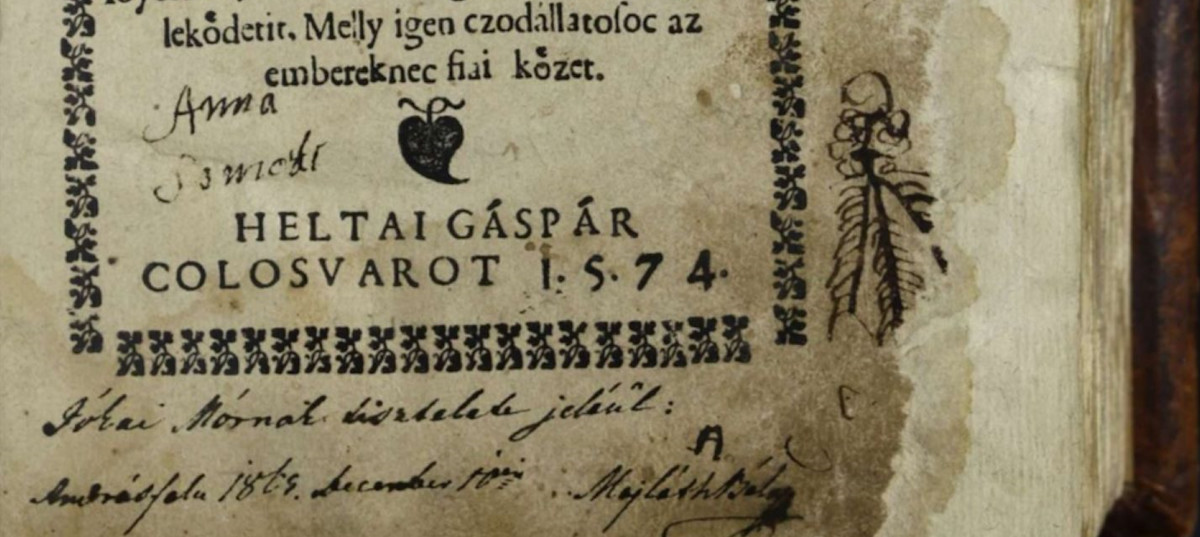 lekȯdetit. Melly igen czodállatosoc az
embereknec fiai kȯzȯt.
Anna
HELTAI GÁSPÁR
COLOSVAROT 1. 5. 7 4.
Jókai Mórnak tisztelete jeléűl:
A
Andrásfalu 186 . december Majláth Béla